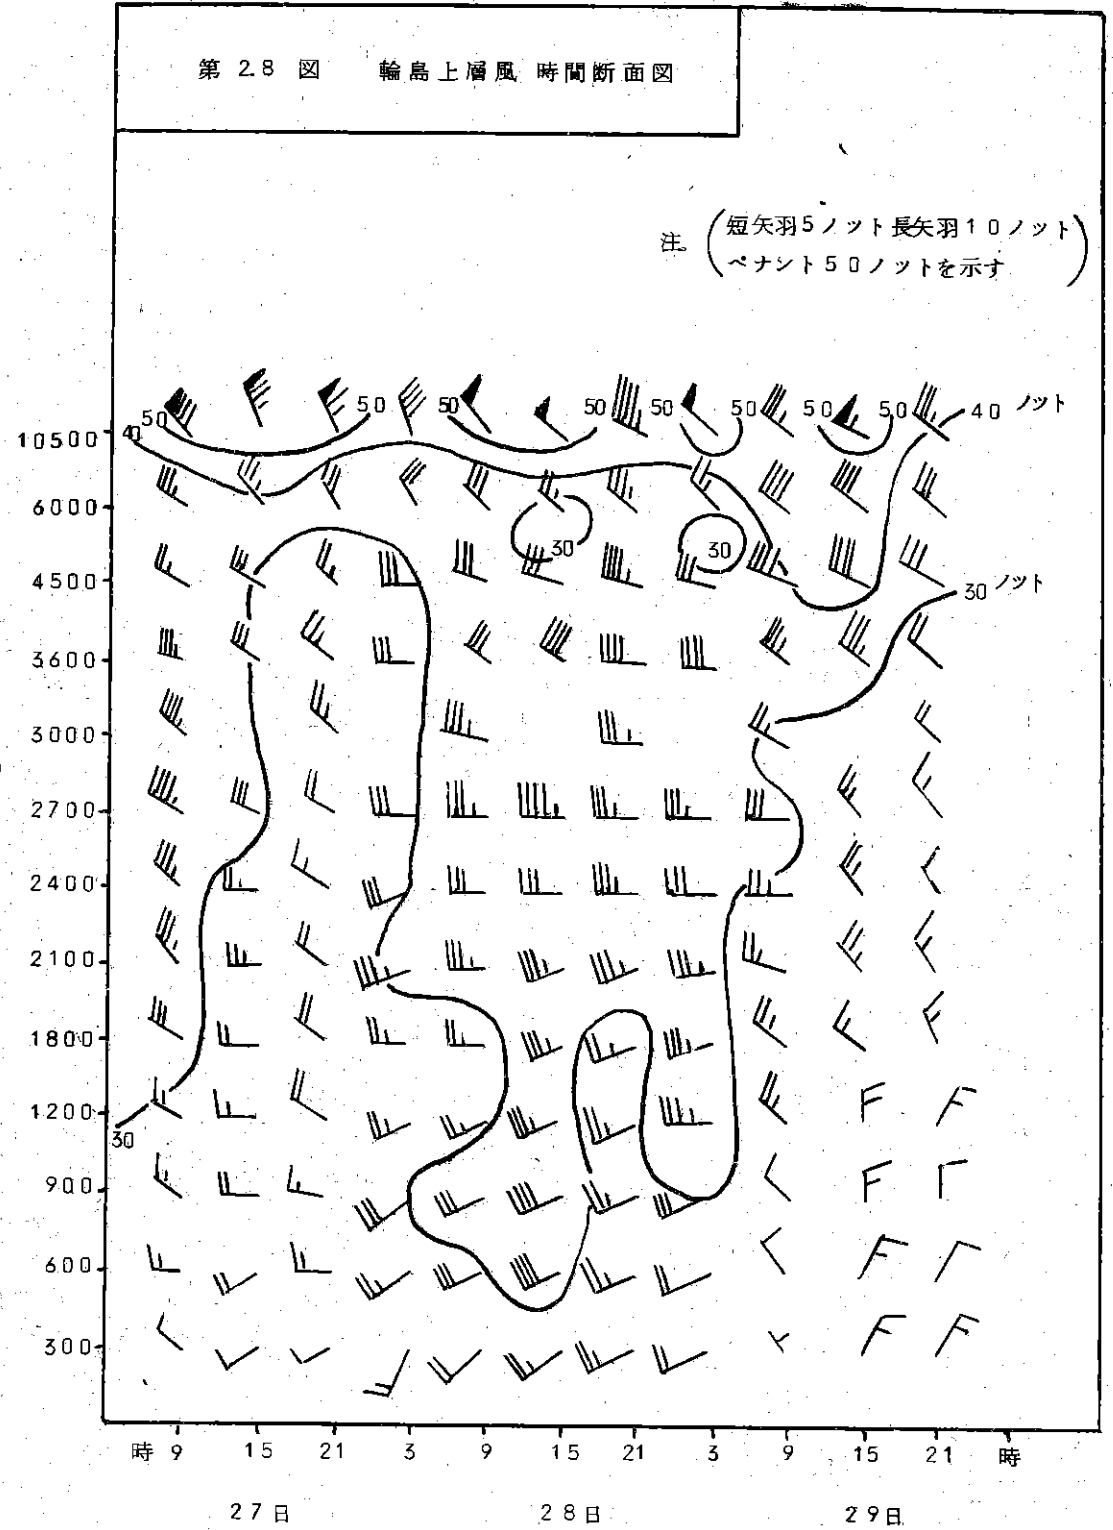 第 2.8 図 輪島上層風 時間断面図
注。
短矢羽5ノット長矢羽10ノット
ペナント50ノットを示す
50 50 50 50 50 50 50 50 40 ノット
10500 40
6000
30 30
4500
30 ノット
3600
3000
2700
2400
2100
1800
1200
30
900
600
300
時 9 15 21 3 9 15 21 3 9 15 21 時
27日 28日 29日